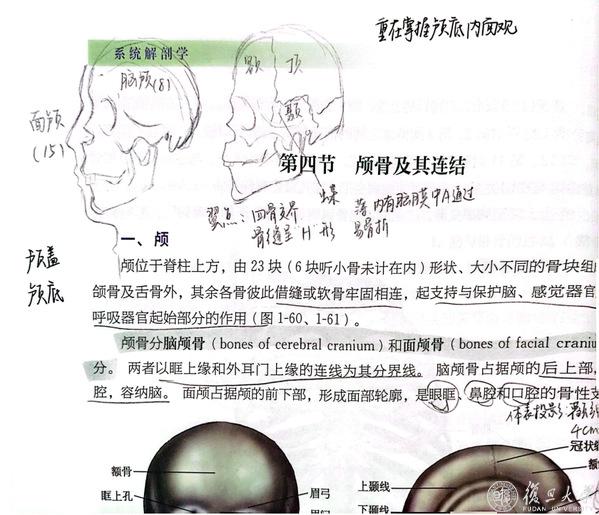 重在掌握颅底内面观
系统解剖学
脑颅(8)
顶
面颅
(15)
颞
第四节 颅骨及其连结
蝶
翼点：四骨交界
骨缝呈"H"形
薄 内有脑膜中A通过
易骨折
一、颅
颅盖
颅底
颅位于脊柱上方，由 23 块（6 块听小骨未计在内）形状、大小不同的骨块组
颌骨及舌骨外，其余各骨彼此借缝或软骨牢固相连，起支持与保护脑、感觉器官
呼吸器官起始部分的作用（图 1-60、1-61）。
颅骨分脑颅骨（bones of cerebral cranium）和面颅骨（bones of facial craniu
分。 两者以眶上缘和外耳门上缘的连线为其分界线。 脑颅骨占据颅的后上部，
腔，容纳脑。 面颅占据颅的前下部，形成面部轮廓，是眼眶、鼻腔和口腔的骨性支
体表投影：
4cm
冠状缝
额骨
眶上孔
眉弓
上颞线
下颞线
復旦大學
FUDAN UNIVERSITY